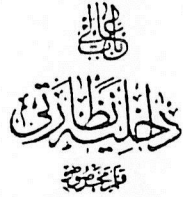 باب عالی
داخلیه نظارتی
قلم مخصوص